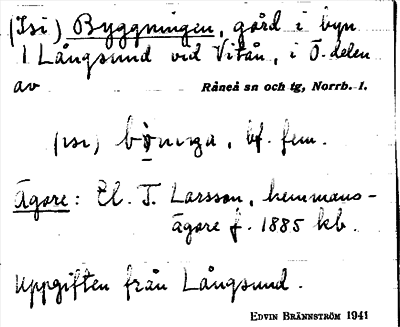 (Isi) Byggningen, gård i byn
Långsund vid Vitån, i Ö. delen
av Råneå sn och tg, Norrb. l.
(isi)
, bf. fem.
Ägare: El. T. Larsson, hemmans-
ägare f. 1885 kb.
Uppgiften från Långsund.
EDVIN BRÄNNSTRÖM 1941